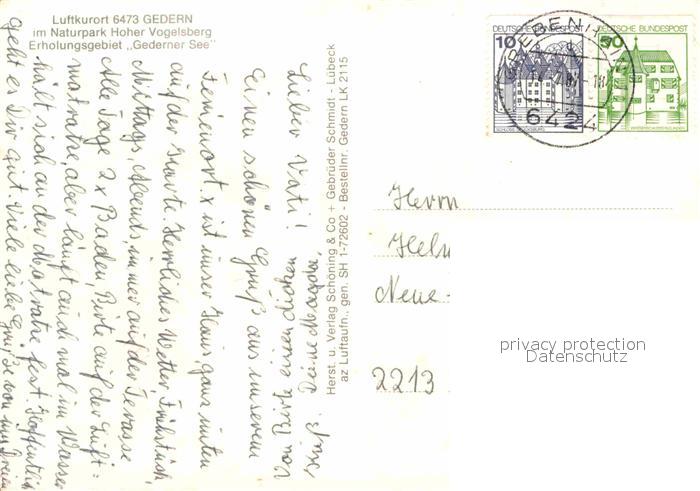 Luftkurort 6473 GEDERN
im Naturpark Hoher Vogelsberg
Erholungsgebiet „Gederner See"
Lieber Vati!
Einen schönen Gruß aus unserem
Ferienort. x ist unser Haus ganz unten
auf der Karte. Herrliches Wetter, Frühstück,
Mittags, Abends, immer auf der Terasse
Alle Tage 2x Baden, Birte auf der Luft=
matratze, aber längst auch mal im Wasser
hält sich an der Matratze fest. Hoffentlich
geht es Dir gut. Viele liebe Grüße von uns Dreien
von Birte einen dicken
Deine
Herst. u. Verlag Schöning & Co + Gebrüder Schmidt - Lübeck
az Luftaufn., gen. SH 1-72602 - Bestellnr. Gedern LK 2115
10
DEUTSCHE BUNDESPOST
SCHLOSS GLÜCKSBURG
50
DEUTSCHE BUNDESPOST
GREBENHAIN
6424
Herrn
Heln
Neue
2213
privacy protection
Datenschutz